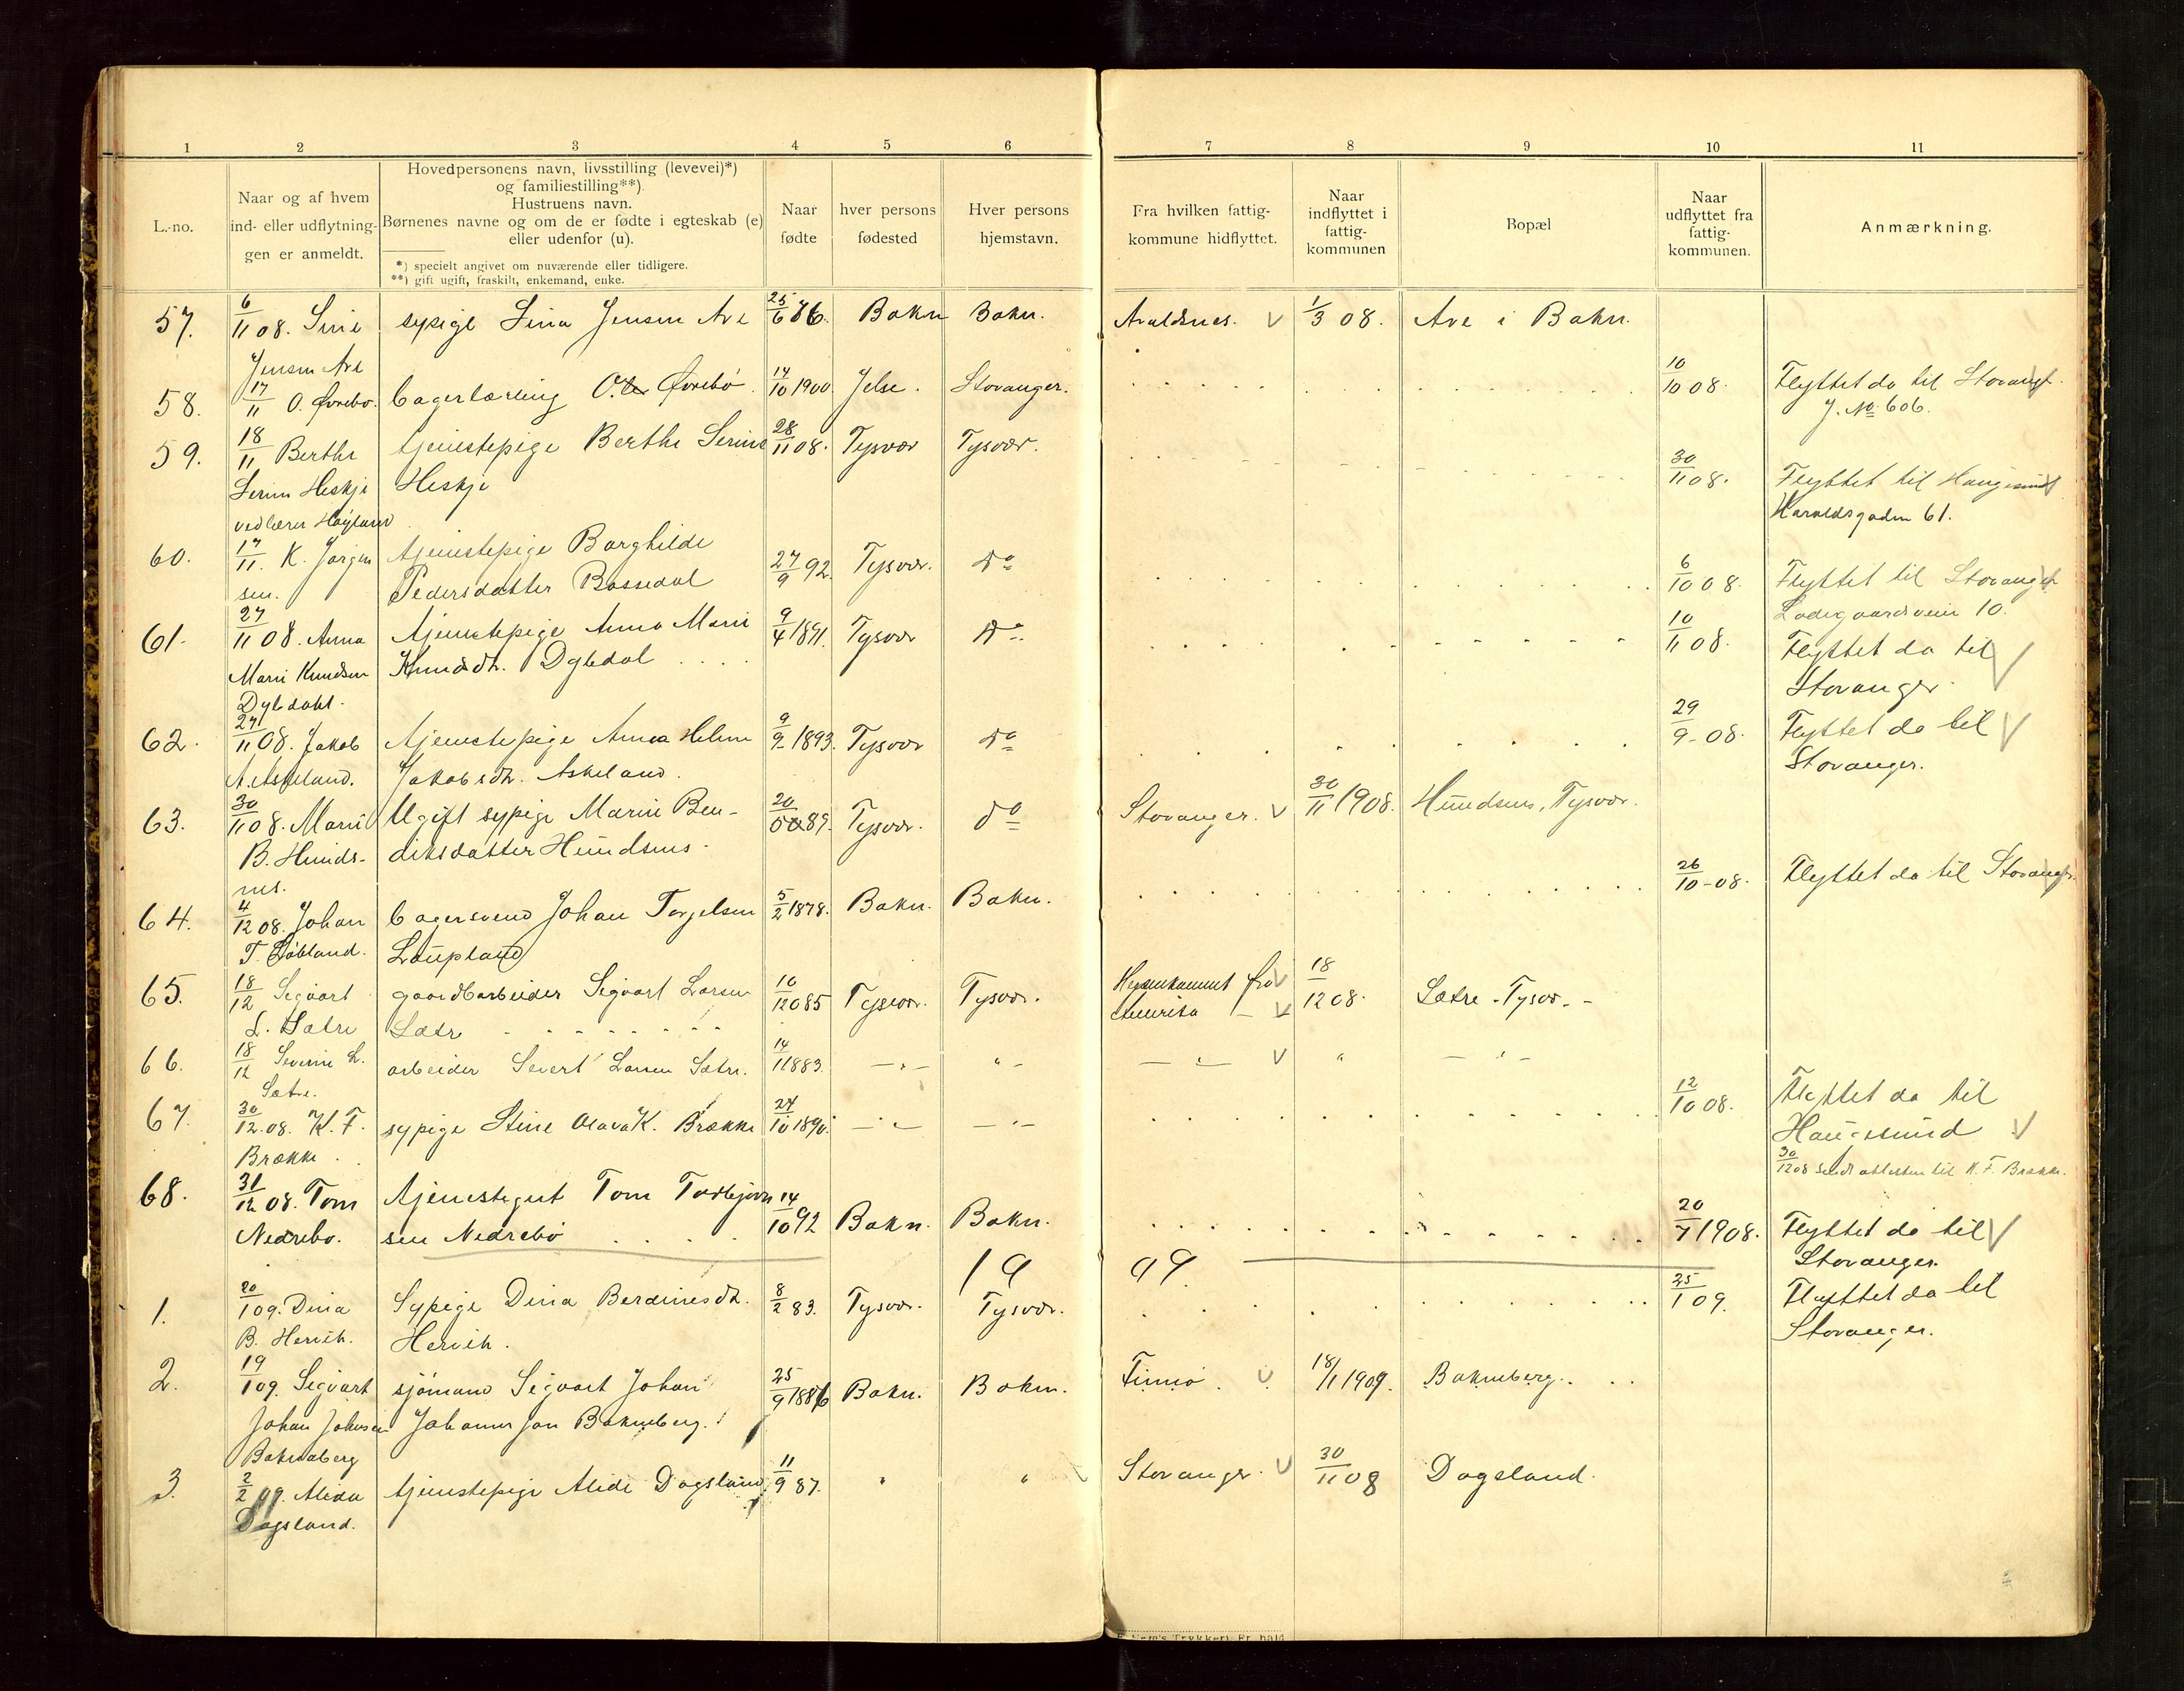 1 2 3 4 5 6 7 8 9 10 11
L.-no.
Naar og af hvem
ind- eller udflytnin-
gen er anmeldt.
Hovedpersonens navn, livsstilling (levevei)*)
og familiestilling**).
Hustruens navn.
Børnenes navne og om de er fødte i egteskab (e)
eller udenfor (u).
*) specielt angivet om nuværende eller tidligere.
**) gift ugift, fraskilt, enkemand, enke.
Naar
fødte
hver persons
fødested
Hver persons
hjemstavn.
Fra hvilken fattig-
kommune hidflyttet.
Naar
indflyttet i
fattig-
kommunen
Bopæl
Naar
udflyttet fra
fattig-
kommunen.
Anmærkning.
57. 6/11 08. Sine sypige Sina Jensen Are 25/6 86. Bokn Bokn. Avaldsnes. V 1/3 08. Are i Bokn.
Jensen Are
58. 17/11 O. Øvrebø. bagerlærling O. Øvrebø. 14/10 1900. Jelse. Stavanger. 10/10 08. Flyttet da til Stavanger.
J. No 606.
59. 18/11 Berthe tjenestepige Berthe Serine 28/11 08. Tysvær Tysvær. 30/11 08. Flyttet til Haugesund
Serine Heskje Heskje
Haraldsgaden 61.
ved lærer Høyland
60. 17/11. K. Jørgen tjenestepige Borghilde 27/9 92. Tysvær. Do 6/10 08. Flyttet til Stavanger
sen. Pedersdatter Bossedal
Ladegaardsveien 10.
61. 27/11 08. Anna tjenestepige Anna Marie 9/4 1891. Tysvær Do 10/11 08. Flyttet da til V
Marie Knudsen Knudsdtr. Dybdal
Stavanger.
Dybdahl.
62. 27/11 08. Jakob tjenestepige Anna Helene 9/9 1893. Tysvær do 29/9-08. Flyttet da til V
A. Askeland. Jakobsdtr. Askeland.
Stavanger.
63. 30/11 08. Marie Ugift sypige Marie Ben- 20/ 89. Tysvær. do Stavanger. V 30/11 1908. Hundsnes, Tysvær.
B. Hunds- diksdatter Hundsnes
nes.
64. 4/12 08. Johan bagersvend Johan Torgelsen 5/2 1878. Bokn. Bokn. 26/10-08. Flyttet da til Stavanger.
T. Løbland. Laupland
65. 18/12 Sigvart gaardbarbeider Sigvart Larsen 10/12 085 Tysvær. Tysvær. Hjemkommet fra V 18/12 08. Sætre - Tysvær. -
L. Sætre Sætre Amerika V
66. 18/12 Severin L. arbeider Severt Larsen Sætre. 14/1 1883. — " — " - — " — V " — " -
Sætre.
67. 30/12.08. K. F. sypige Stine Olava K. Brække 24/10 1890. — " — — " — 12/10 08. Flyttet da til
Brække.
Haugesund V
30/12 08 sendt attesten til K. F. Brække.
68. 31/12 08. Tom tjenestegut Tom Torbjørn 14/10 92 Bokn. Bokn. 20/7 1908. Flyttet da til V
Nedrebø. sen Nedrebø
Stavanger.
19 09.
1. 20/1 09. Dina Sypige Dina Berdinesdtr. 8/2 83. Tysvær. Tysvær. 25/1 09. Flyttet da til
B. Hervik. Hervik.
Stavanger.
2. 19/1 09. Sigvart sjømand Sigvart Johan 25/9 1886 Bokn. Bokn. Finnø. V 18/1 1909. Bokneberg.
Johan Johnsen Johannesson Bokneberg.
Bokneberg
3. 2/2 09. Alida tjenestepige Alide Dagsland 11/9 87. " " Stavanger. V 30/11 08 Dagsland.
Dagsland.